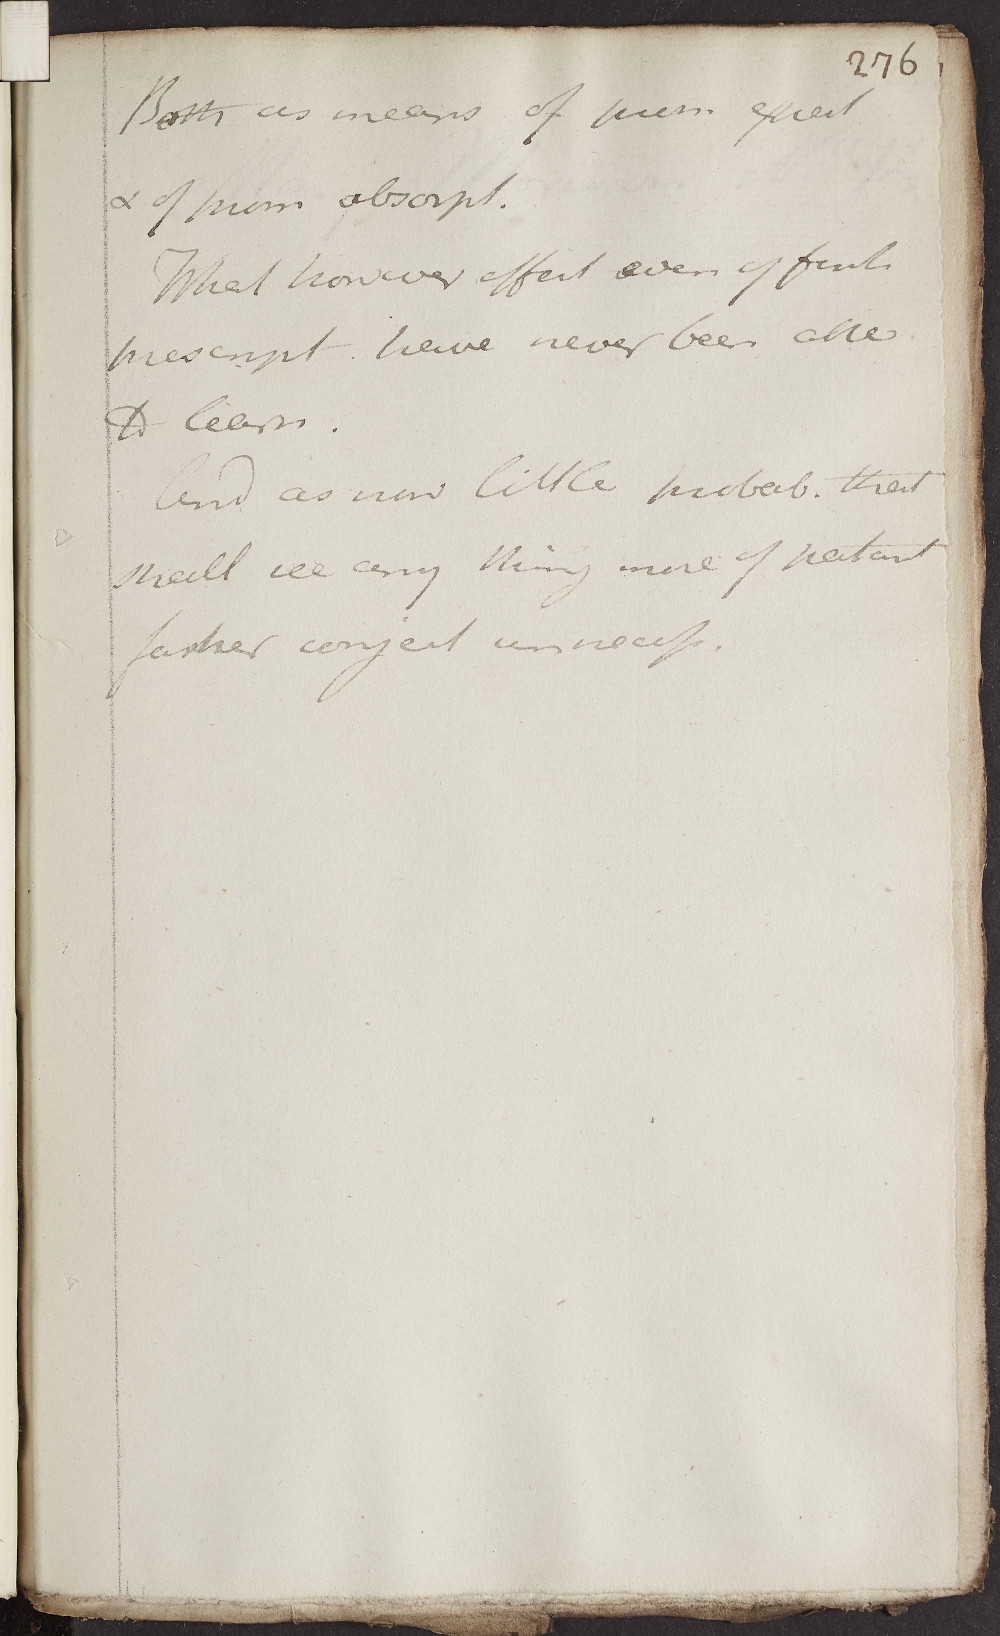 276
Both as means of prom expect
& of prom absorpt.
What however effect even of first
prescript. have never been able
to learn.
And as now little probab. that
shall see any thing more of patient
farther conject unnecess.